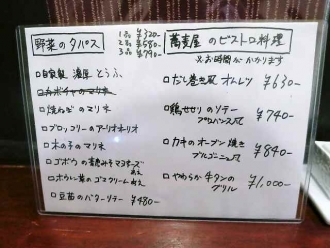 野菜のタパス
1品 ¥320-
2品 ¥580-
3品 ¥790-
□自家製 濃厚 とうふ
□カボチャのマリネ
□焼ねぎのマリネ
□ブロッコリーのアーリオオーリオ
□木の子のマリネ
□ゴボウの青のりマヨネーズあえ
□ホウレン草のゴマクリームあえ
□豆苗のバターソテー ¥480-
蕎麦屋のビストロ料理
※お時間がかかります
□だし巻き風オムレツ ¥630-
□鶏せせりのソテー プロバンス風 ¥740-
□カキのオーブン焼き ブルゴーニュ風 ¥840-
□やわらか牛タンのグリル ¥1,000-